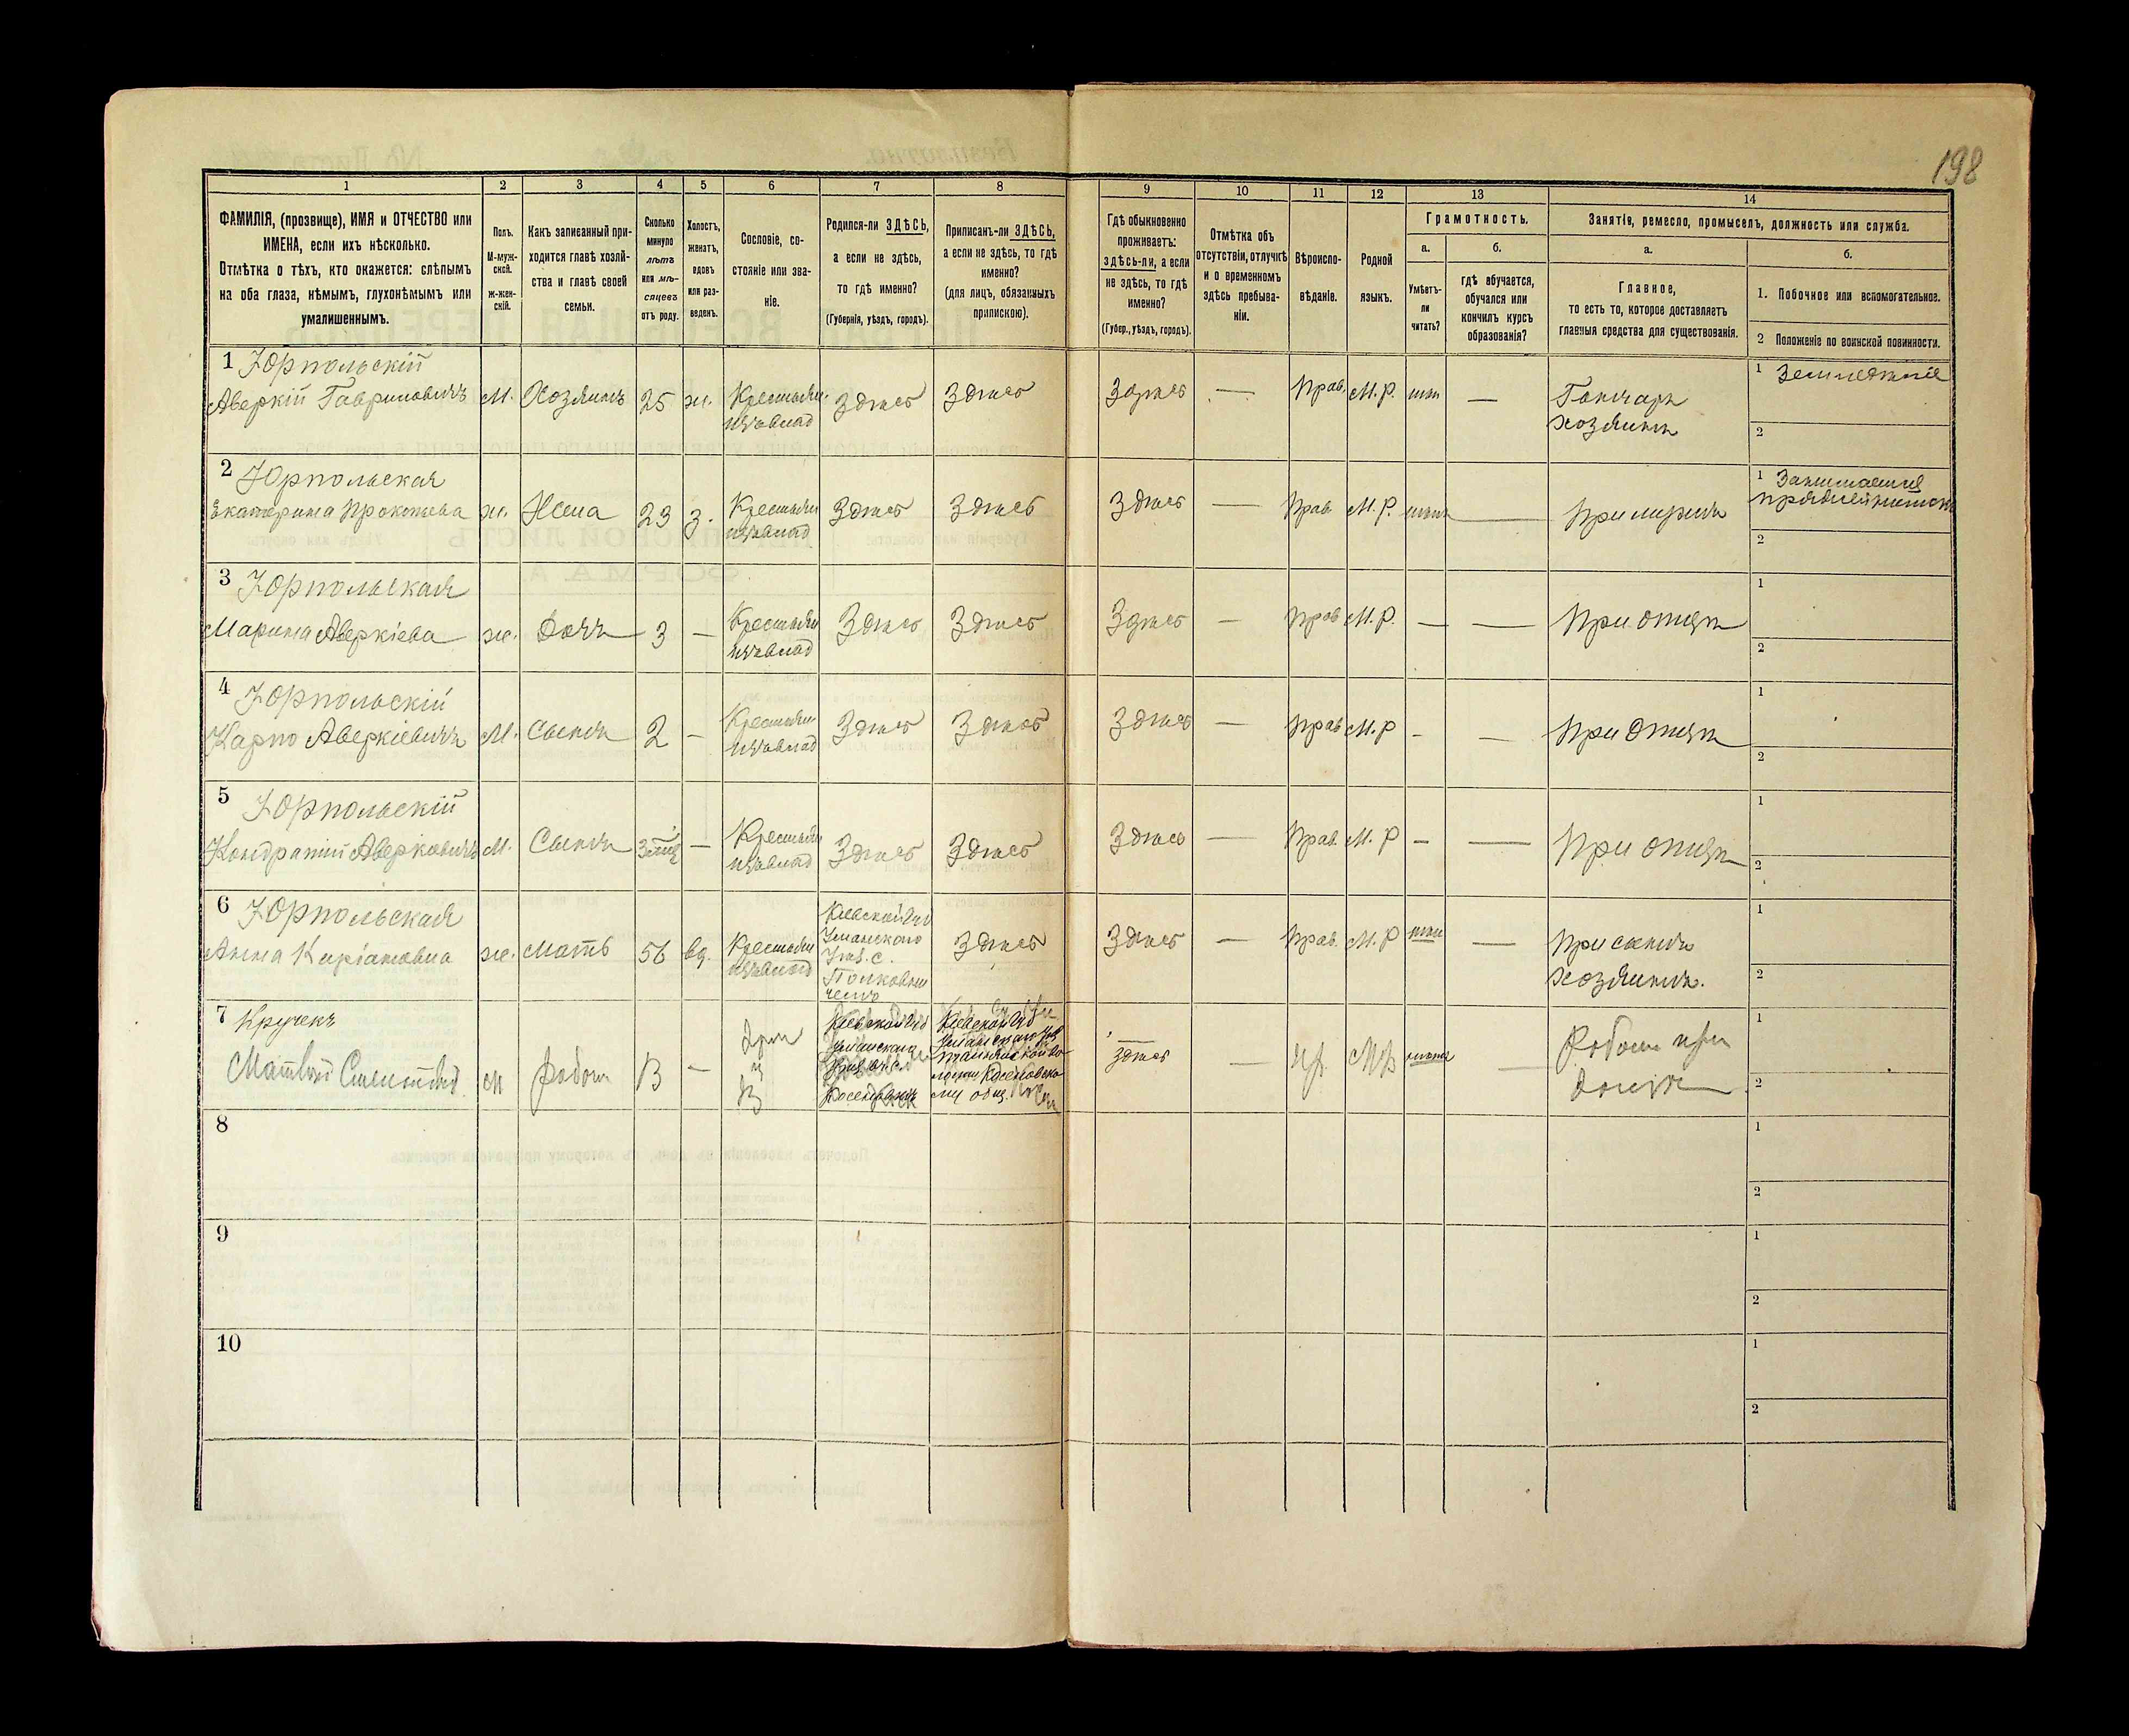 198
1
2
3
4
5
6
7
8
9
10
11
12
13
14
ФАМИЛІЯ, (прозвище), ИМЯ и ОТЧЕСТВО или
ИМЕНА, если ихъ нѣсколько.
Отмѣтка о тѣхъ, кто окажется: слѣпымъ
на оба глаза, нѣмымъ, глухонѣмымъ или
умалишеннымъ.
Полъ.
М-муж-
ской.
Ж-жен-
скій.
Какъ записанный при-
ходится главѣ хозяй-
ства и главѣ своей
семьи.
Сколько
минуло
лѣтъ
или мѣ-
сяцевъ
отъ роду.
Холостъ,
женатъ,
вдовъ
или раз-
веденъ.
Сословіе, со-
стояніе или зва-
ніе.
Родился-ли ЗДѢСЬ,
а если не здѣсь,
то гдѣ именно?
(Губернія, уѣздъ, городъ).
Приписанъ-ли ЗДѢСЬ,
а если не здѣсь, то гдѣ
именно?
(для лицъ, обязанныхъ
припискою).
Гдѣ обыкновенно
проживаетъ:
здѣсь-ли, а если
не здѣсь, то гдѣ
именно?
(Губер., уѣздъ, городъ).
Отмѣтка объ
отсутствіи, отлучкѣ
и о временномъ
здѣсь пребыва-
ніи.
Вѣроиспо-
вѣданіе.
Родной
языкъ.
Грамотность.
а.
Умѣетъ-
ли
читать?
б.
гдѣ обучается,
обучался или
кончилъ курсъ
образованія?
Занятіе, ремесло, промыселъ, должность или служба.
а.
Главное,
то есть то, которое доставляетъ
главныя средства для существованія.
б.
1. Побочное или вспомогательное.
2 Положеніе по воинской повинности.
1 Юрпольскій
Аверкій Гавриловичъ м. Хозяинъ 25 ж. Крестьян. Здѣсь Здѣсь Здѣсь — Прав. М.Р. нѣт — Гончаръ
хозяинъ
1 Земледѣліе
2
2 Юрпольская
Екатерина Прокопьева ж. Жена 23 з. Крестьян Здѣсь Здѣсь Здѣсь — Прав. М.Р. нѣтъ — При мужѣ
1 Занимается
пряденіемъ
2
3 Юрпольская
Марина Аверкіева ж. Дочь 3 — Крестьян Здѣсь Здѣсь Здѣсь — Прав М.Р. — — При отцѣ
1
2
4 Юрпольскій
Карпо Аверкіевичъ М. Сынъ 2 — Крестьян Здѣсь Здѣсь Здѣсь — Прав М.Р — — При отцѣ
1
2
5 Юрпольскій
Кондратій Аверковичъ М. Сынъ — Крестьян Здѣсь Здѣсь Здѣсь — Прав. М.Р — — При отцѣ
1
2
6 Юрпольская
Анна ж. Мать 56 вд. Крестьян
Кіевской Губ
Уманскаго
Уѣз. с.
Полковни
чемъ
Здѣсь Здѣсь — Прав. М.Р нѣт — При сынѣ
Хозяинѣ.
1
2
7 Кручекъ
Матвій м 13 —
Кіевской Губ
Уманскаго
Кіевской Губ
Уманскаго
Здѣсь — —
1
2
8
1
2
9
1
2
10
1
2